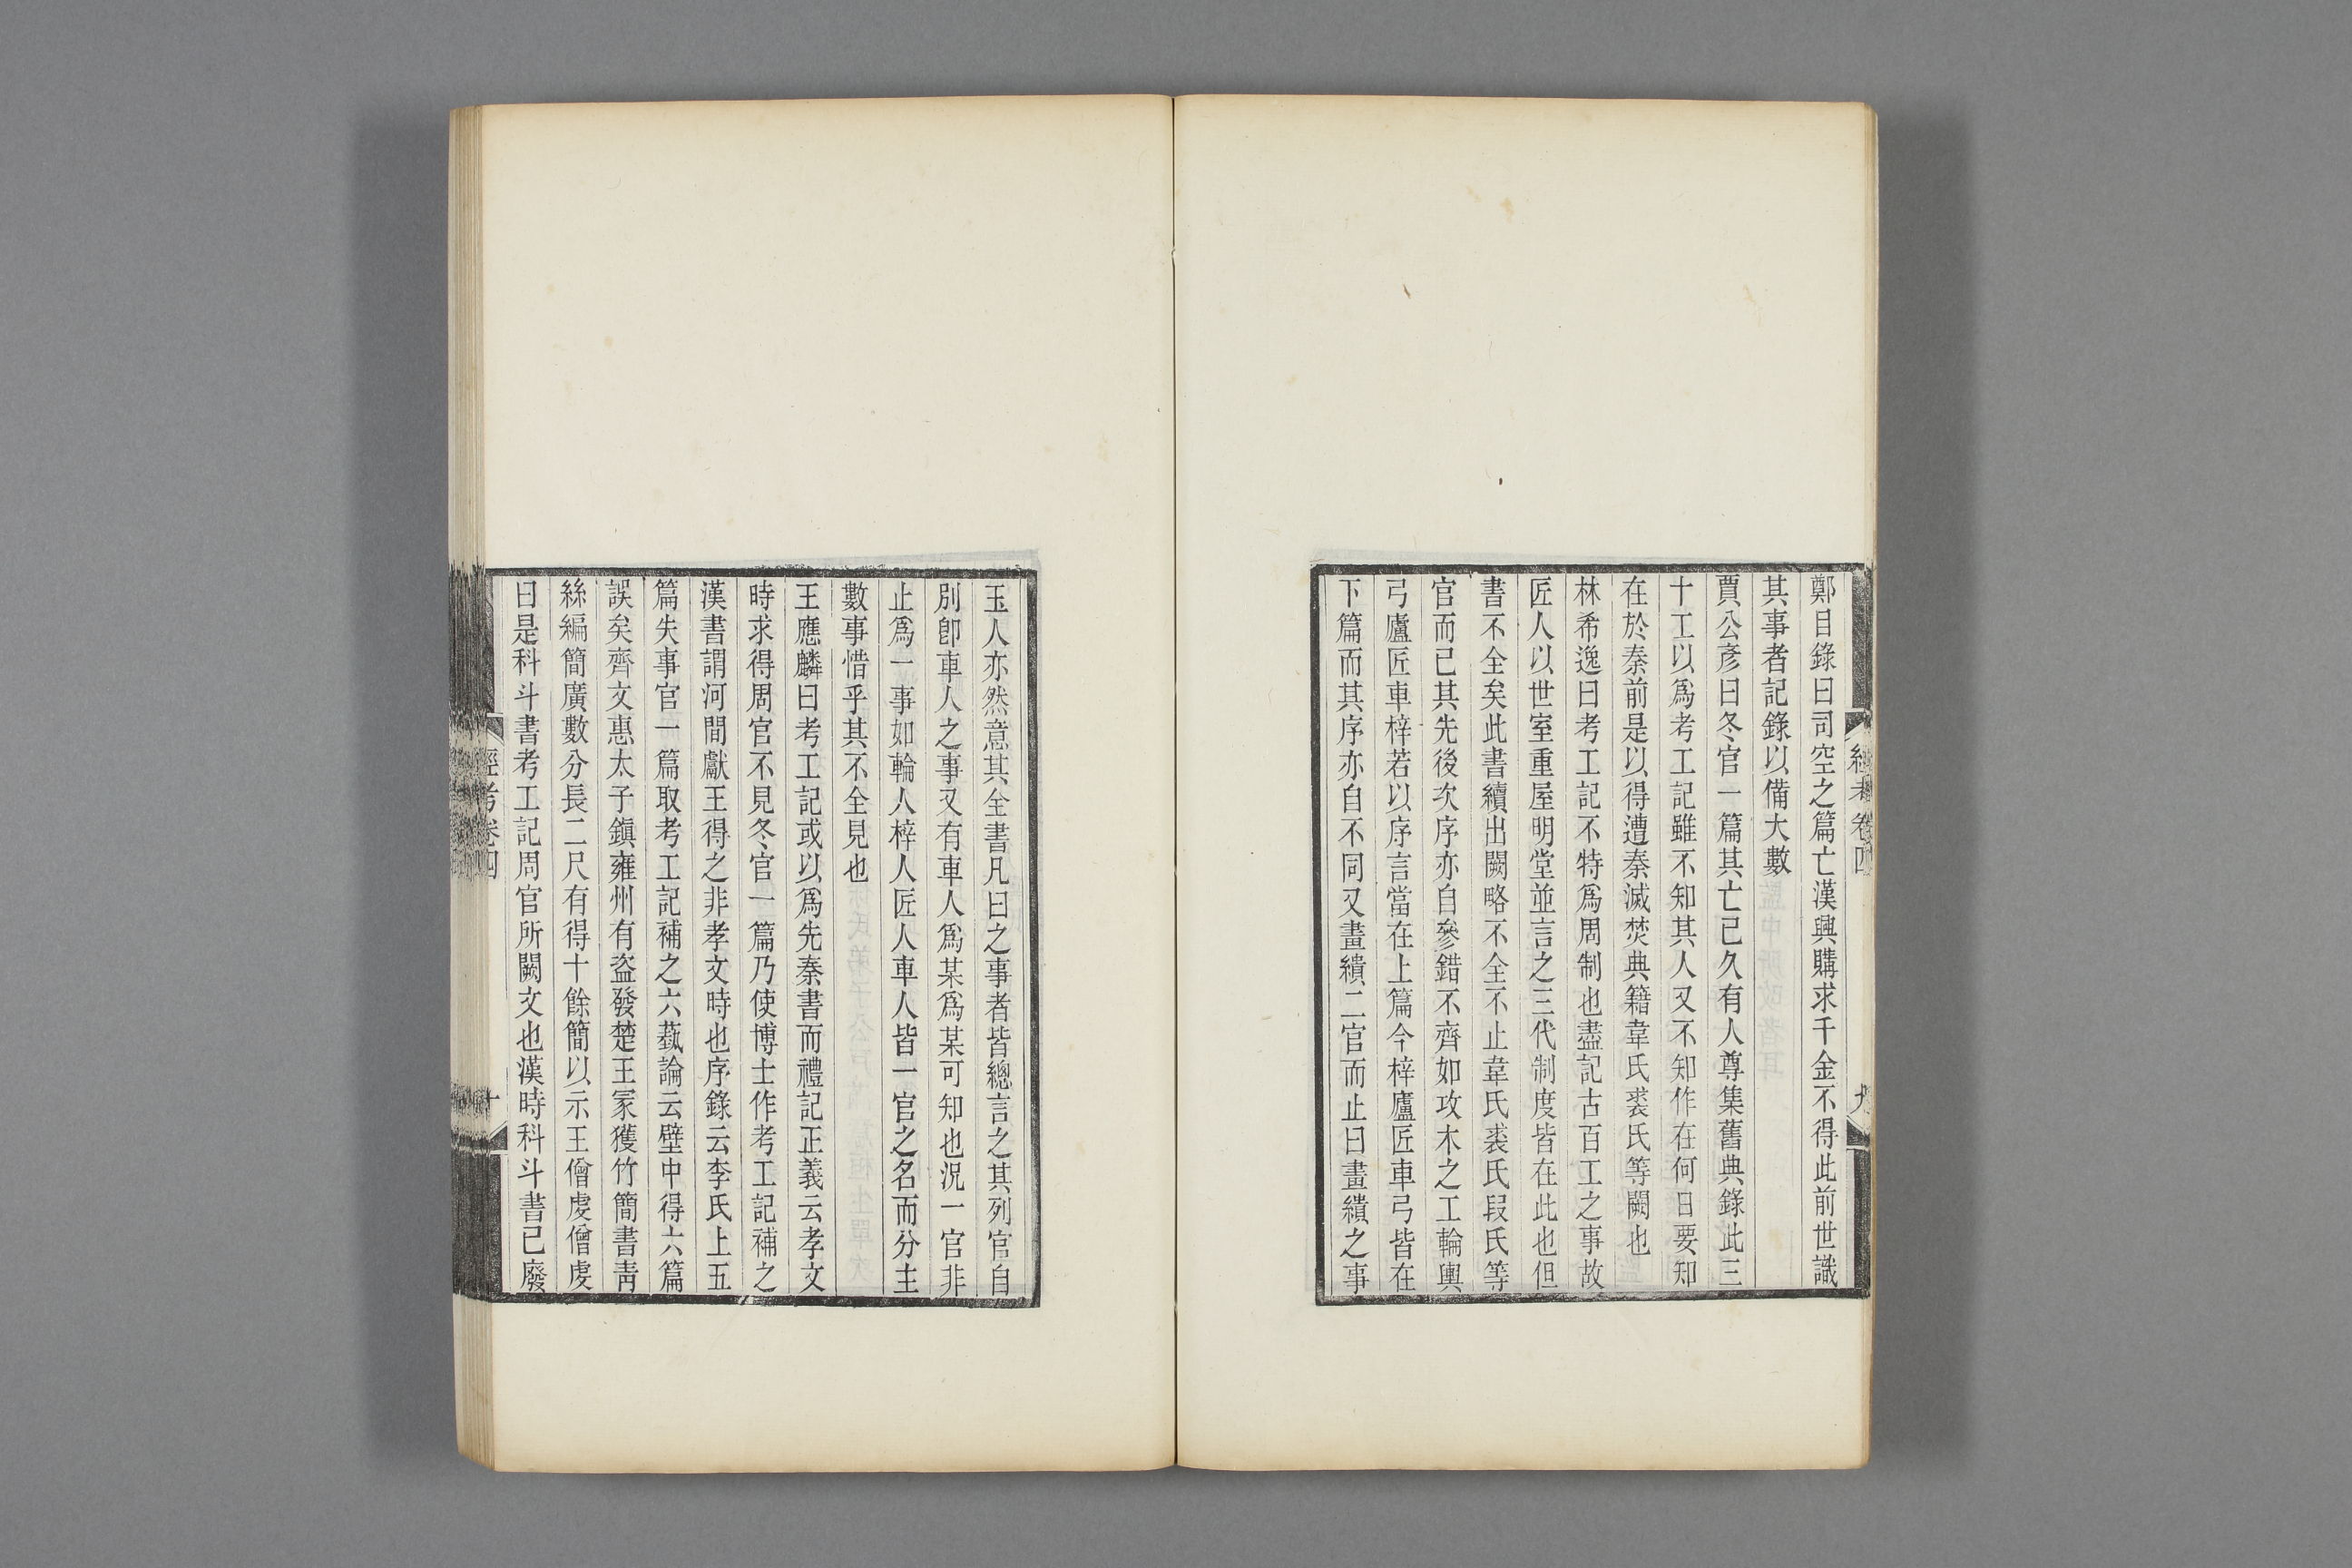 經考卷四
九
鄭目錄曰司空之篇亡漢興購求千金不得此前世識
其事者記錄以備大數
賈公彥曰冬官一篇其亡已久有人尊集舊典錄此三
十工以爲考工記雖不知其人又不知作在何日要知
在於秦前是以得遭秦滅焚典籍韋氏裘氏等闕也
林希逸曰考工記不特爲周制也盡記古百工之事故
匠人以世室重屋明堂並言之三代制度皆在此也但
書不全矣此書續出闕略不全不止韋氏裘氏段氏等
官而已其先後次序亦自參錯不齊如攻木之工輪輿
弓廬匠車梓若以序言當在上篇今梓廬匠車弓皆在
下篇而其序亦自不同又畫繢二官而止曰畫繢之事
玉人亦然意其全書凡曰之事者皆總言之其列官自
別卽車人之事又有車人爲某爲某可知也況一官非
止爲一事如輪人梓人匠人車人皆一官之名而分主
數事惜乎其不全見也
王應麟曰考工記或以爲先秦書而禮記正義云孝文
時求得周官不見冬官一篇乃使博士作考工記補之
漢書謂河間獻王得之非孝文時也序錄云李氏上五
篇失事官一篇取考工記補之六蓺論云壁中得六篇
誤矣齊文惠太子鎭雍州有盜發楚王冢獲竹簡書靑
絲編簡廣數分長二尺有得十餘簡以示王僧虔僧虔
曰是科斗書考工記周官所闕文也漢時科斗書已廢
經考卷四
十